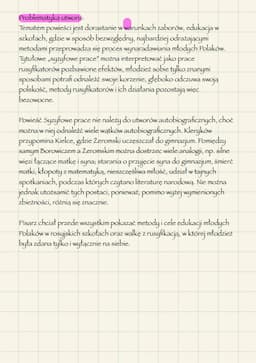 Problematyka utworu
Tematem powieści jest dorastanie w warunkach zaborów, edukacja w
szkołach, gdzie w sposób bezwzględny, najbardziej odrażającymi
metodami przeprowadza się proces wynaradawiania młodych Polaków.
Tytułowe „syzyfowe prace” można interpretować jako prace
rusyfikatorów pozbawione efektów, młodzież sobie tylko znanymi
sposobami potrafi odnaleźć swoje korzenie, głęboko odczuwa swoją
polskość, metody rusyfikatorów i ich działania pozostają więc
bezowocne.
Powieść Syzyfowe prace nie należy do utworów autobiograficznych, choć
można w niej odnaleźć wiele wątków autobiograficznych. Kleryków
przypomina Kielce, gdzie Żeromski uczęszczał do gimnazjum. Pomiędzy
samym Borowiczem a Żeromskim można dostrzec wiele analogii, np. silne
więzi łączące matkę i syna; starania o przyjęcie syna do gimnazjum, śmierć
matki, kłopoty z matematyką, nieszczęśliwa miłość, udział w tajnych
spotkaniach, podczas których czytano literaturę narodową. Nie można
jednak utożsamić tych postaci, ponieważ, pomimo wyżej wymienionych
zbieżności, różnią się znacznie.
Pisarz chciał przede wszystkim pokazać metody i cele edukacji młodych
Polaków w rosyjskich szkołach oraz walkę z rusyfikacją, w której młodzież
była zdana tylko i wyłącznie na siebie.